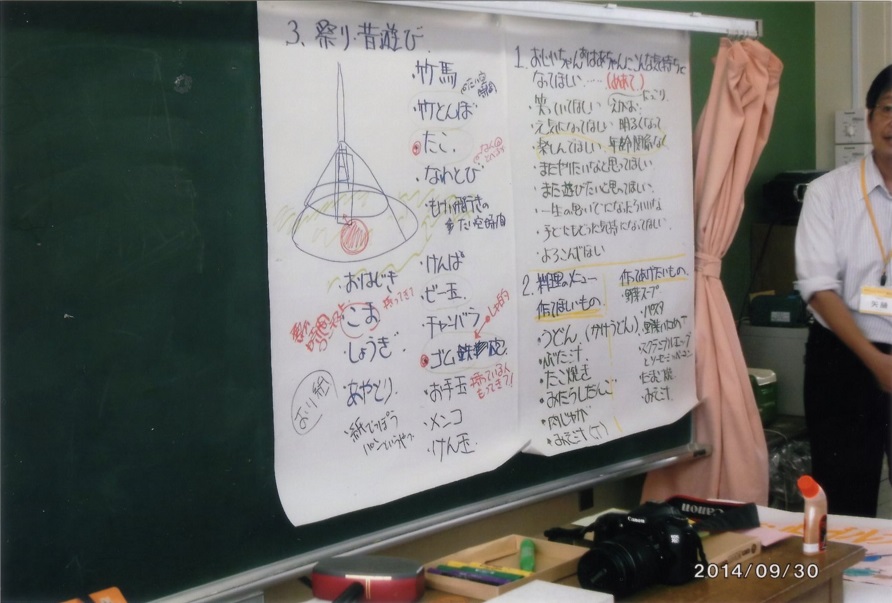 3. 祭り・昔遊び
・竹馬
・竹とんぼ
・たこ
・なわとび
・おはじき
・こま
・しょうぎ
・あやとり
おり紙
・紙でっぽう
・けんぱ
・ビー玉
・チャンバラ
・ゴム鉄砲
・お手玉
持っている人もってきて!
・メンコ
・けん玉
1. おじいちゃんおばあちゃんにこんな気持ちに
なってほしい……
・笑っていてほしい えがお
・元気になってほしい 明るくなって
・楽しんでほしい 年齢関係なく
・またやりたいなと思ってほしい
・また遊びたいと思ってほしい
・一生の思いでになったらいいな
2. 料理のメニュー
作ってほしいもの
・うどん (かけうどん)
・ぶた汁
・たこ焼き
・みたらしだんご
・肉じゃが
・みそ汁
作ってあげたいもの
・野菜スープ
・パスタ
・野菜いため
・スクランブルエッグ
・みそ汁
Canon
Canon
2014/09/30